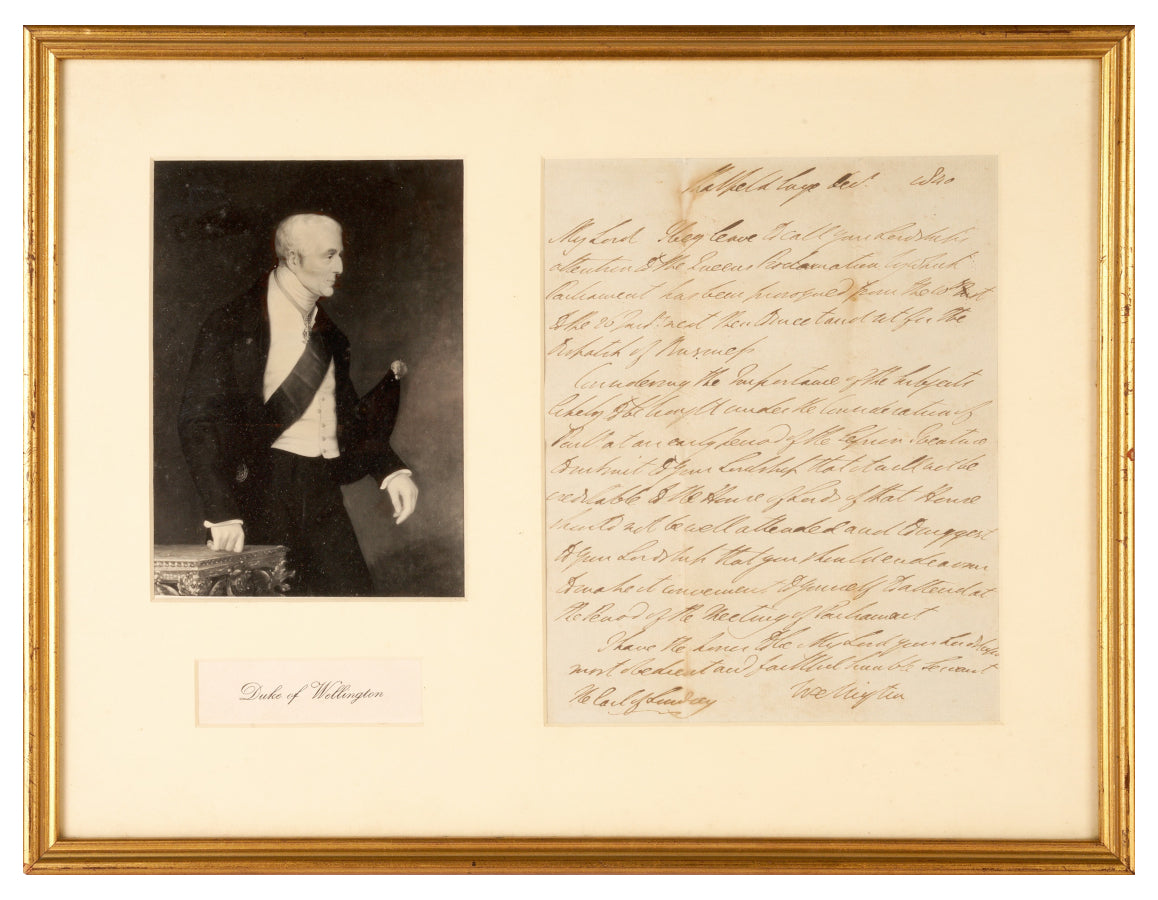 Duke of Wellington
Strathfield Saye Decr. 1840
My Lord I beg leave to call your Lordship's
attention to the Queens Proclamation by which
Parliament has been prorogued from the 10th Inst
to the 26 Jany. next then to meet and sit for the
dispatch of Business
Considering the Importance of the Subjects
likely to be brought under the Consideration of
Parlt at an early period of the Session I venture
to submit to your Lordship that it will not be
creditable to the House of Lords if that House
should not be well attended and to suggest
to your Lordship that you should endeavour
to make it convenient to yourself to attend at
the Period of the Meeting of Parliament
I have the honor to be My Lord your Lordship's
most obedient and faithful humble Servant
The Earl of Lindsay Wellington